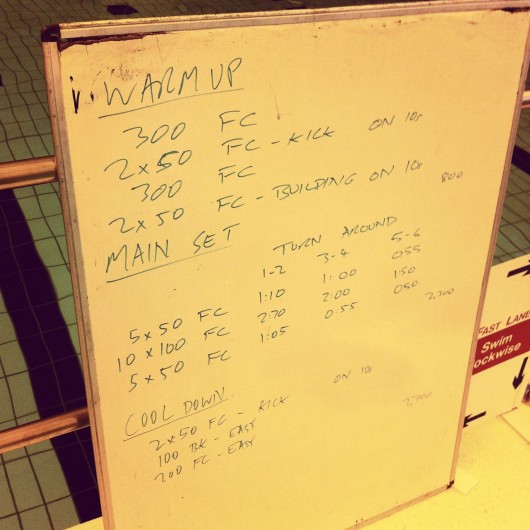 WARM UP
300 FC
2x50 FC - KICK ON 10r
300 FC
2x50 FC - BUILDING ON 10r 800
MAIN SET TURN AROUND
1-2 3-4 5-6
5x50 FC 1:10 1:00 055
10x100 FC 2:10 2:00 1:50
5x50 FC 1:05 0:55 050
2,300
COOL DOWN
2x50 FC - KICK ON 10r
100 BK - EASY
200 FC - EASY 2,700
FAST LANE
Swim
ockwise